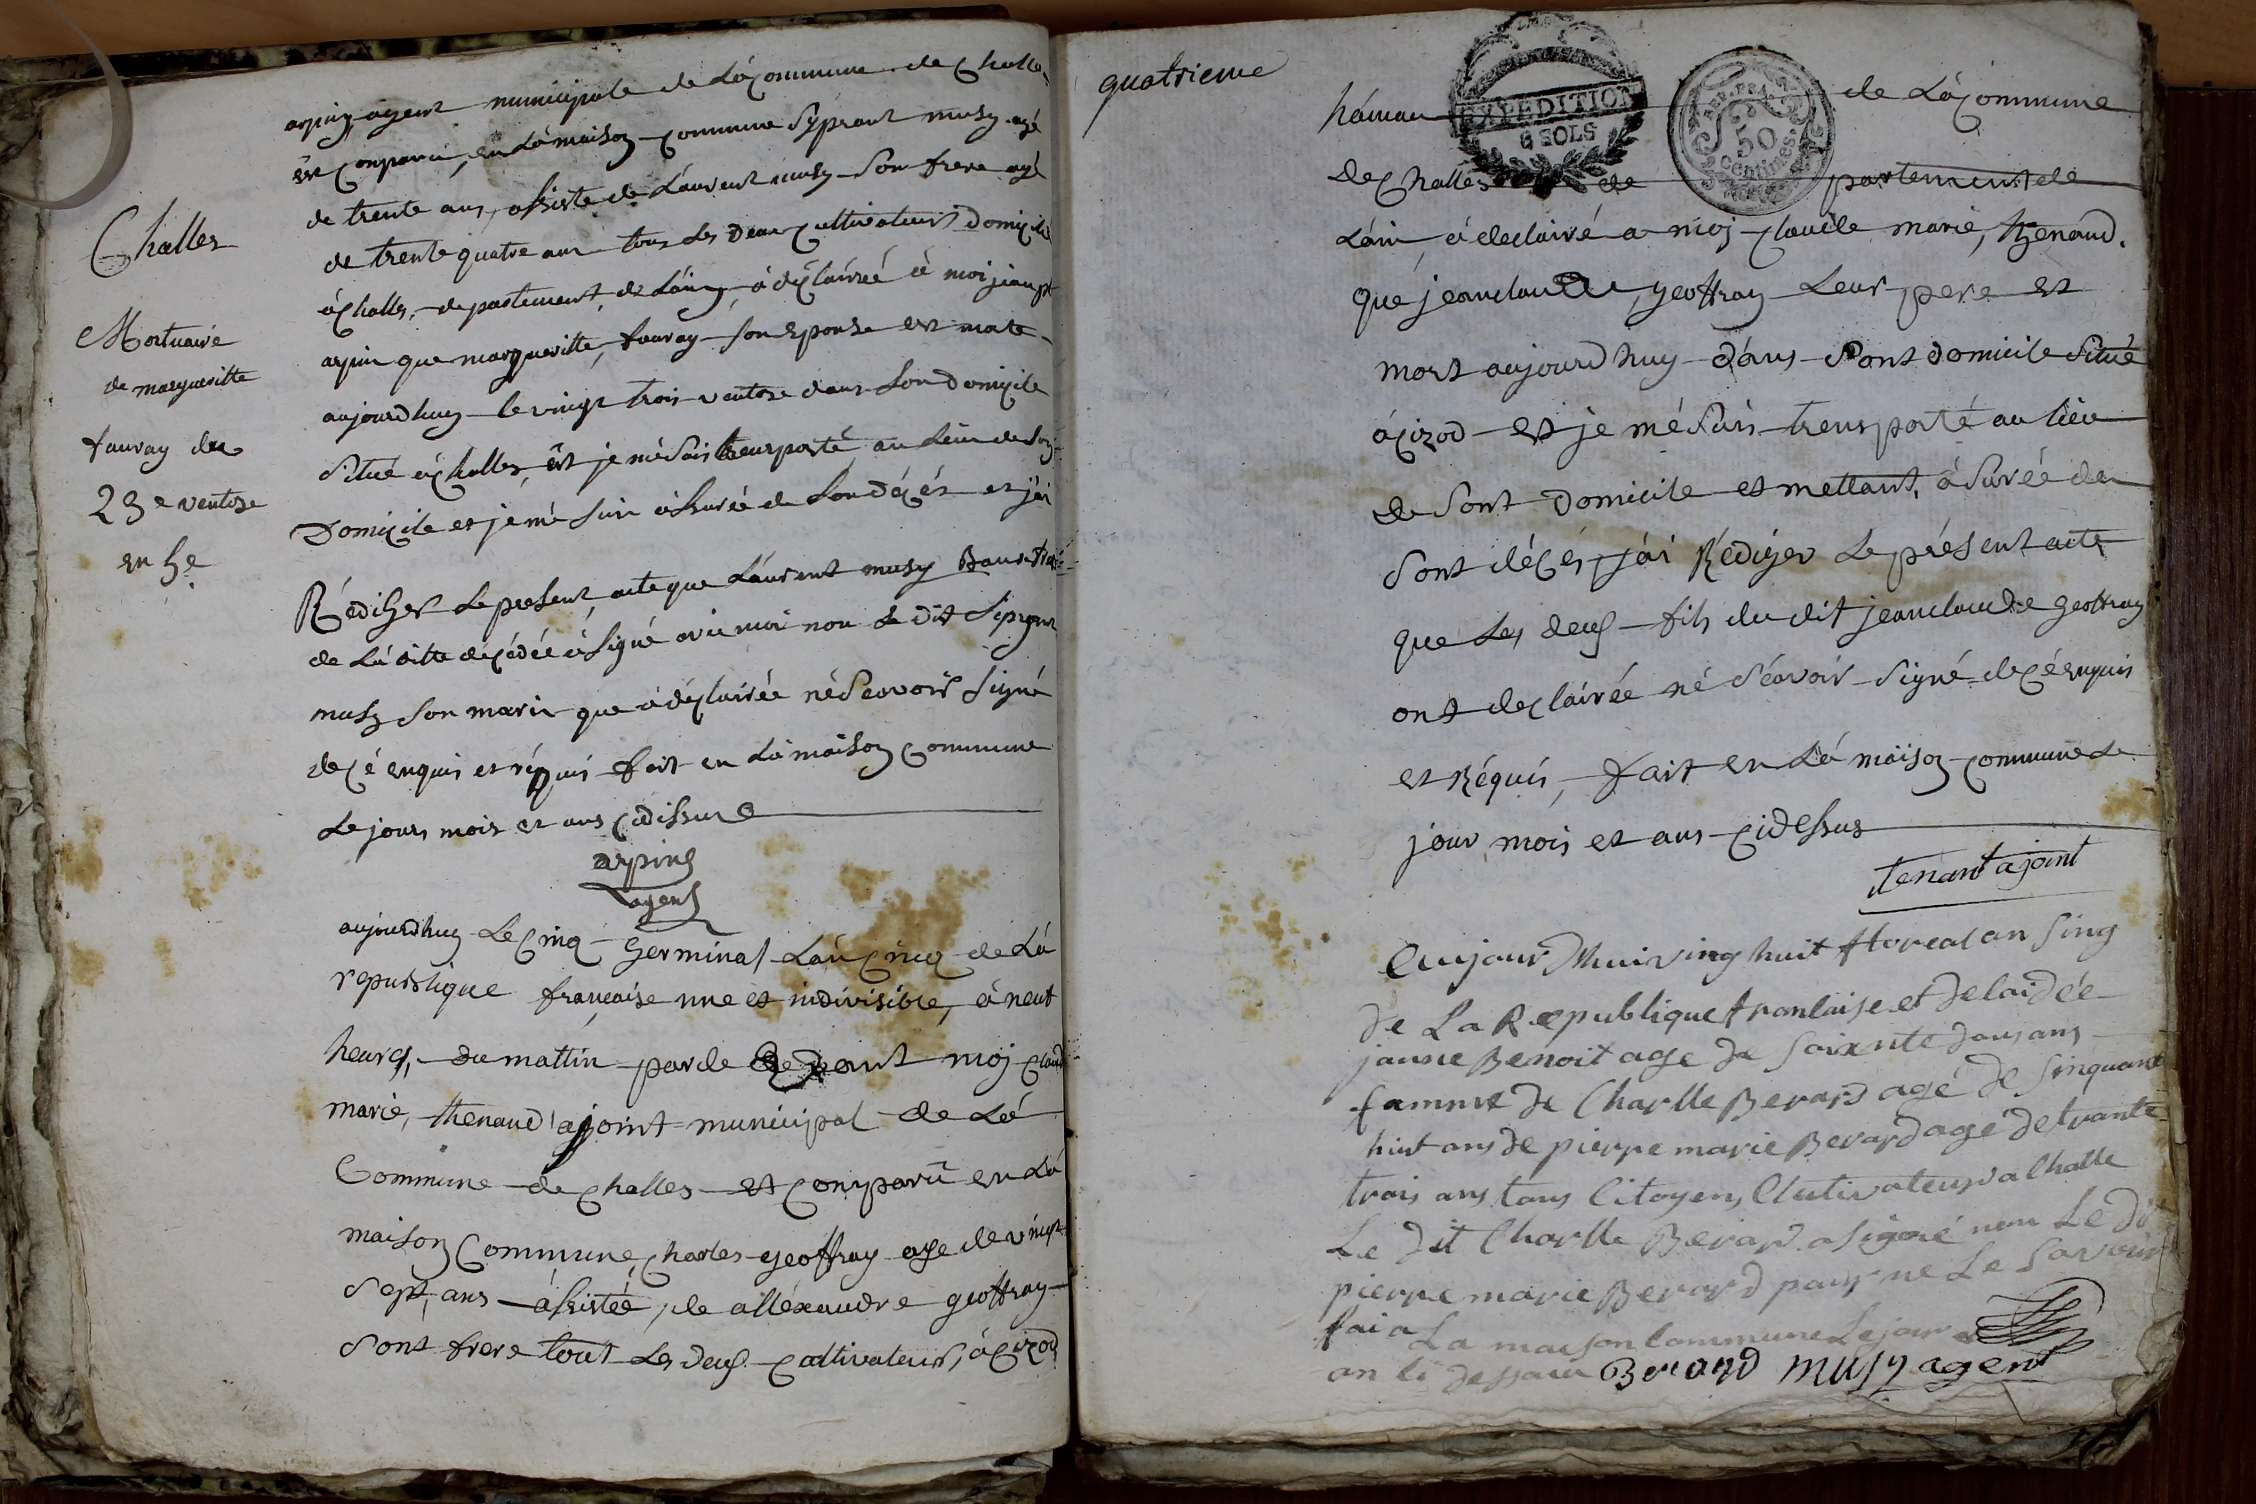 Challes
Mortuaire
de margueritte
fauray du
23e ventose
en 5e
arpin agent municipale de Lácommune de Challe
est Conparu, en Lámaison commune Siprant musy agé
de trente ans, assiste de Láurent musy son frere agé
de trente quatre ans tous Les Deux Cultivateurs domicile
áchalles, departement de Láin, á déclairéé á moi jeanpt
arpin que margueritte, fauray son Epouse est morte
aujourdhuy le vingt trois ventose dans Son Domicile
Situé áchalles, est je mé Suis transporté au Lieu de Son
Domicile et jé mé Suis ássurée de Son décés et jái
Rédiger Le present acte que Láurent musy Baufrere
de Lá ditte décédée á Signé avec moi non Le Dit Siprant
musy Son marie que á déclairée né Scavoir Signé
de Cé enquis et réquis fait en Lá maison Commune
Le jours mois et ans cidissus
arpin
agent
aujourdhuy Le cinq Germinal Lán cinq de Lá
republique francaise une et indivisible, á neuf
heures, du mattin parde devant moj claude
marie, thenaud ajoint municipal de Lá
Commune de challes est Conparu en Lá
maison Commune, charles geoffray age de vingt
Sept, ans ássistée, de alléxandre geoffray
Sont frere tout Les deux cultivateur, ácizod
quatrieme
háneau de Lácommune
EXPEDITION
6 SOLS
REP. FRA.
50
Centimes
de challes de partement de
Láin á declairé a moj claude marie, thenaud.
qué jeanclaude, geoffray Leur pere est
mort aujourdhuy dans Sont domicile Situé
ácizod est je mé Suis transporté au lieu
de Sont Domicile et mettant, ásurée de
Sont décés, jái Rédiger Le présent acte
que Les deux fils du dit jeanclaude geoffray
ont declairée né Séavoir Signé de cé enquis
et Réquis, fait en Lá maison commune Le
jour mois et ans cidessus
tenant ajoint
Aujourdhui ving huit floreal an Sing
de La Republique franlaise et delaidée
janne Benoit age de soixnte dousans
famme de Charlle Berard agé de Sinquante
huit ans de pierre marie Berard agé detrante
trois ans tous Citoyens Cultivateurs a Challe
Le dit Charlle Berard a signé non Le dit
pierre marie Berard pour ne Le Savoir
fai a La maison Commune Lejour et
an li dessus Berard musy agent